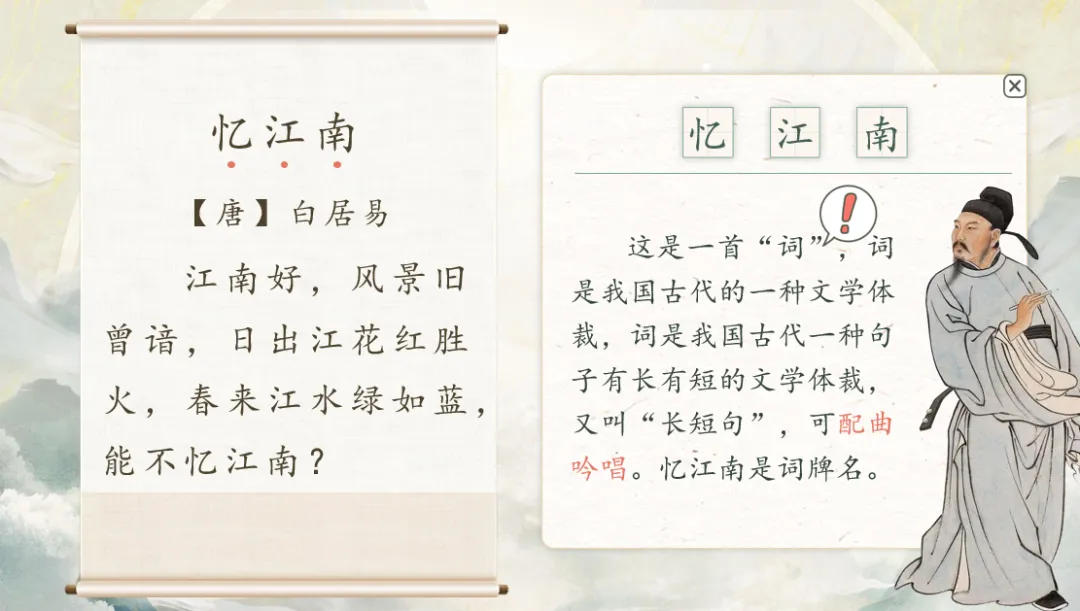 忆江南
【唐】白居易
江南好，风景旧
曾谙，日出江花红胜
火，春来江水绿如蓝，
能不忆江南？
忆江南
这是一首“词”，词
是我国古代的一种文学体
裁，词是我国古代一种句
子有长有短的文学体裁，
又叫“长短句”，可配曲
吟唱。忆江南是词牌名。